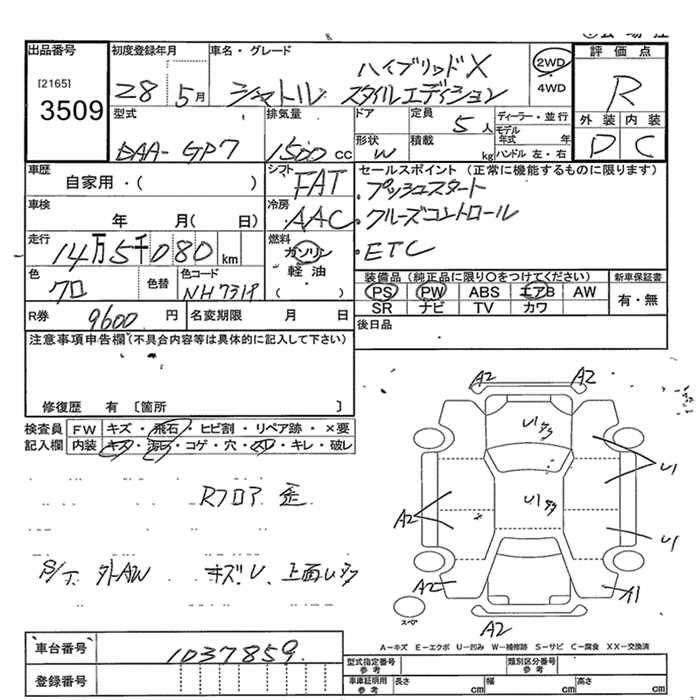 出品番号
[2165]
3509
初度登録年月
28 5月
車名・グレード
シャトル ハイブリッドX
スタイルエディション
2WD
4WD
評価点
R
外装 内装
D C
型式
DAA-GP7
排気量
1500 cc
ドア
形状
W
定員
5人
積載
kg
ディーラー・並行
モデル年式 年
ハンドル 左・右
車歴
自家用・( )
シフト
FAT
セールスポイント (正常に機能するものに限ります)
・プッシュスタート
・クルーズコントロール
・ETC
車検
年 月( 日)
冷房
AAC
走行
14万5千080km
燃料
ガソリン
軽油
( )
色
クロ
色替
色コード
NH731P
装備品 (純正品に限り○をつけてください)
PS PW ABS エアB AW
SR ナビ TV カワ
新車保証書
有・無
R券 9600円
名変期限 月 日
後日品
注意事項申告欄(不具合内容等は具体的に記入して下さい)
修復歴 有 〔箇所 〕
検査員記入欄
FW キズ・飛石・ヒビ割・リペア跡・×要
内装 キズ・汚レ・コゲ・穴・スレ・キレ・破レ
Rフロア 歪
S/T 外AW キズU 上面U
A2 A2
U1
U1
U1
U1
A2
A2
A1
A2
スペア
A-キズ E-エクボ U-凹み W-補修跡 S-サビ C-腐食 XX-交換済
車台番号
1037859
登録番号
型式指定番号
参考
類別区分番号
参考
車庫証明用
参考
長さ cm
幅 cm
高さ cm